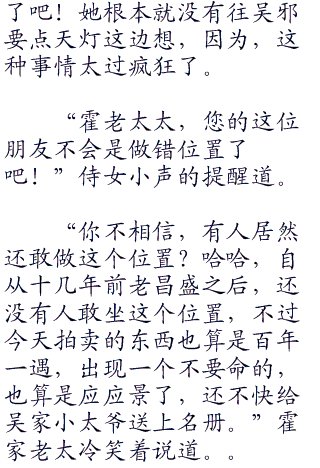 了吧！她根本就没有往吴邪
要点天灯这边想，因为，这
种事情太过疯狂了。
“霍老太太，您的这位
朋友不会是做错位置了
吧！”侍女小声的提醒道。
“你不相信，有人居然
还敢做这个位置？哈哈，自
从十几年前老昌盛之后，还
没有人敢坐这个位置，不过
今天拍卖的东西也算是百年
一遇，出现一个不要命的，
也算是应应景了，还不快给
吴家小太爷送上名册。”霍
家老太冷笑着说道。。